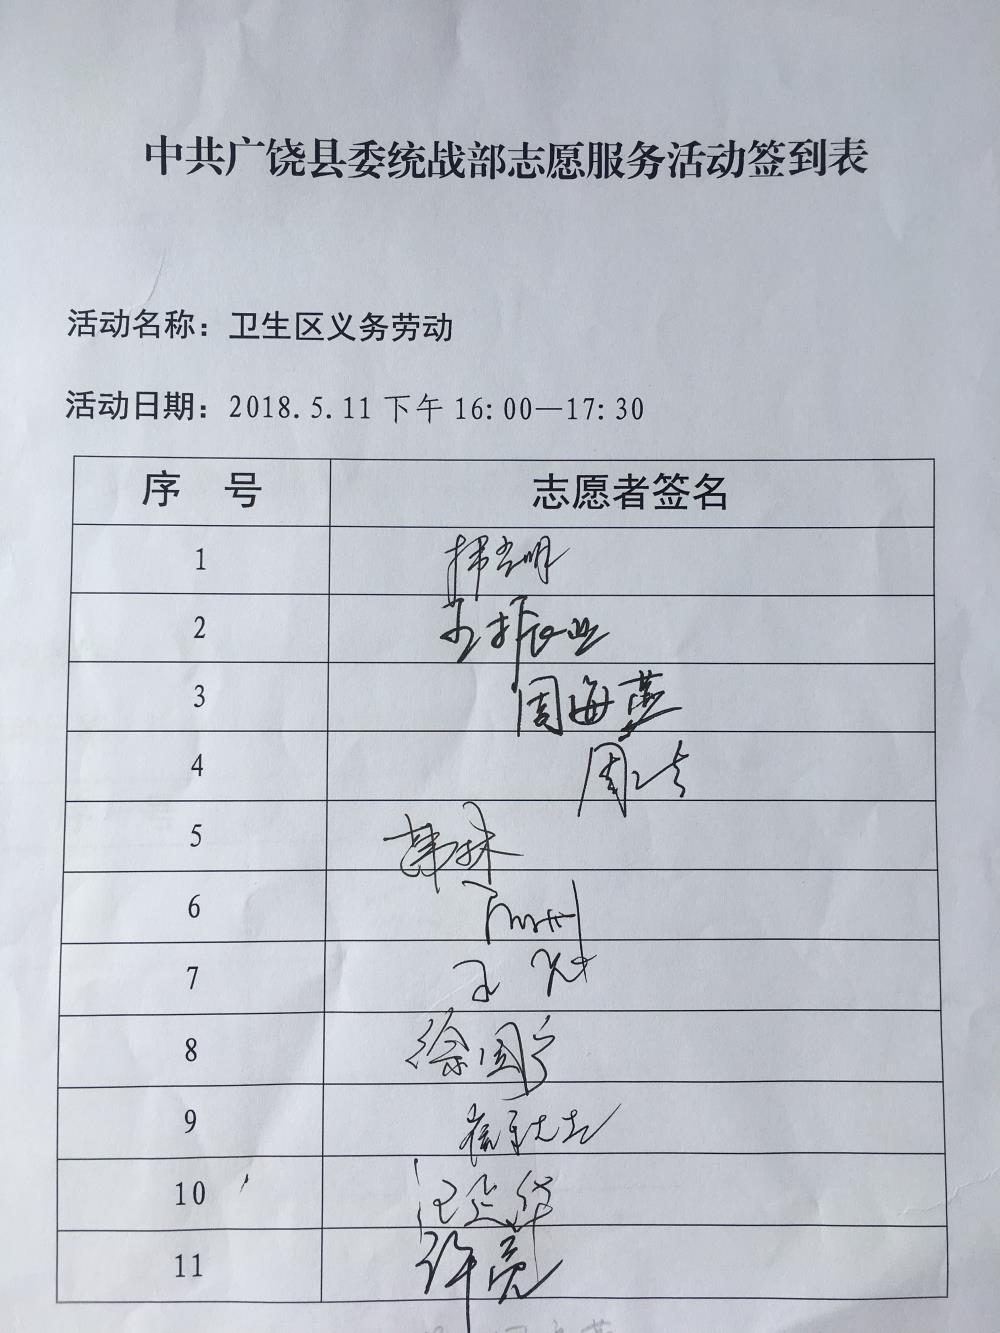 中共广饶县委统战部志愿服务活动签到表
活动名称：卫生区义务劳动
活动日期：2018.5.11下午16:00—17:30
序 号 志愿者签名
1
2 王振业
3 周海燕
4 周洁
5 韩林
6
7 王
8 徐国宁
9 崔
10 汪益华
11 许亮